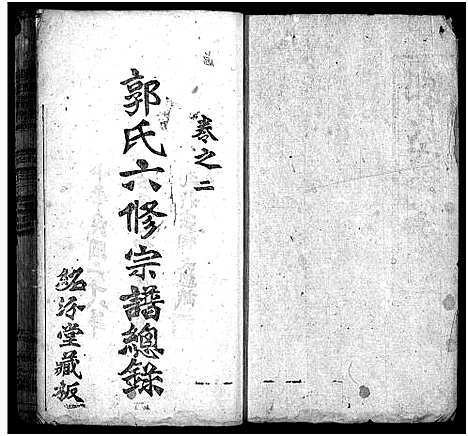 卷之二
郭氏六修宗譜總錄
紹汾堂藏板